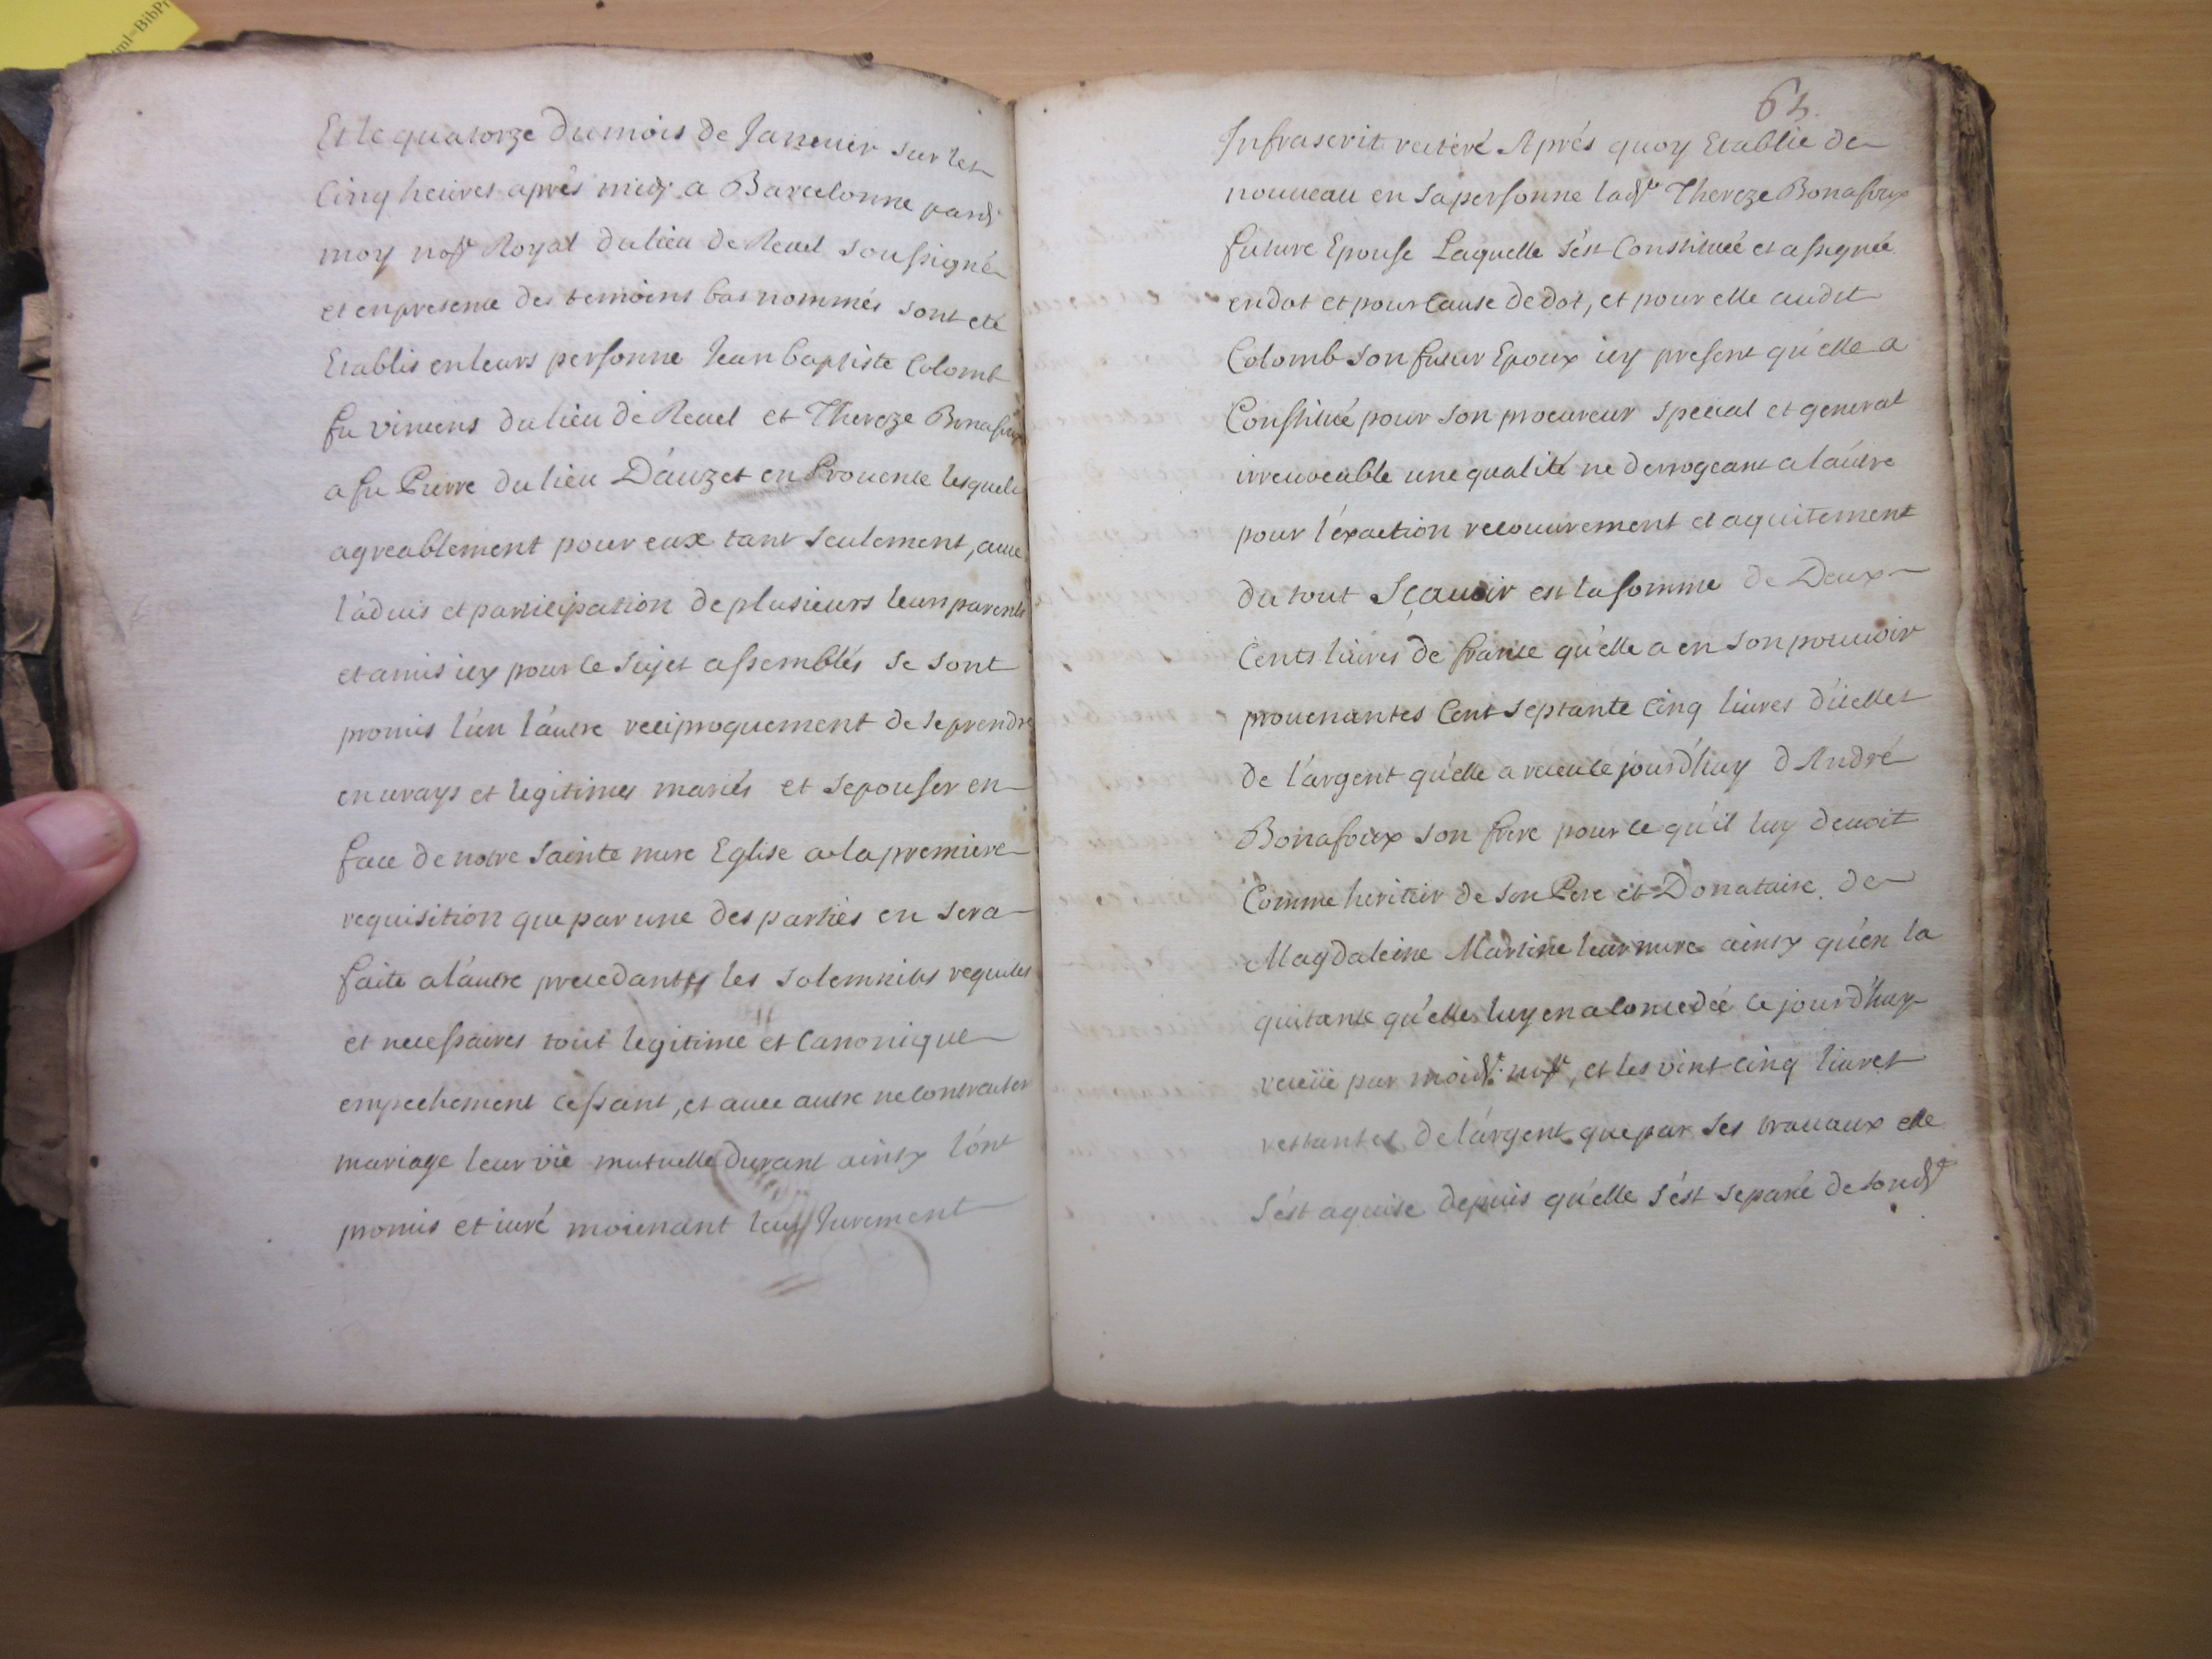 Et le quatorze du mois de Januier sur les
Cinq heures aprés midy a Barcelonne pard.t
moy nore Royal du lieu de Reuel soussigné
et en presence des temoins bas nommés sont eté
Etablis en leurs personne Jean baptiste Colomb
fu Vincens du lieu de Reuel et Thereze Bonafoux
a fu Pierre du lieu D'auzet en Prouence lesquels
agreablement pour eux tant seulement, auec
l'aduis et participation de plusieurs leurs parents
et amis icy pour ce sujet assemblés se sont
promis l'un l'autre reciproquement de se prendre
en urays et legitimes mariés et s'epouser en
face de notre sainte mere Eglise a la premiere
requisition que par une des parties en sera
faite a l'autre precedantes les solemnités requises
et necessaires tout legitime et Canonique
empechement cessant, et auec autre ne contracter
mariage leur vie mutuelle durant ainsy l'ont
promis et iuré moienant leur Jurement
Infrascrit reiteré Aprés quoy Etablie de
nouueau en sa personne lad.te Thereze Bonafoux
future Epouse Laquelle s'est Constituée et assignée
en dot et pour Cause de dot, et pour elle audit
Colomb son futur Epoux icy present qu'elle a
Constitué pour son procureur special et general
irreuocable une qualité ne derrogeant a l'autre
pour l'exaction recouurement et aquitement
du tout Sçauoir est la somme de Deux
Cents liures de france qu'elle a en son pouuoir
prouenantes Cent septante Cinq liures d'icelles
de l'argent qu'elle a receu ce jourd'huy d'André
Bonafoux son frere pour ce qu'il luy deuoit
Comme heritier de son Pere et Donataire de
Magdaleine Martine leur mere ainsy qu'en la
quitance qu'elle luy en a concedée ce jourd'huy
receüe par moid.t nore, et les vint cinq liures
restantes de l'argent que par ses trauaux elle
s'est aquise depuis qu'elle s'est separé de sond.t